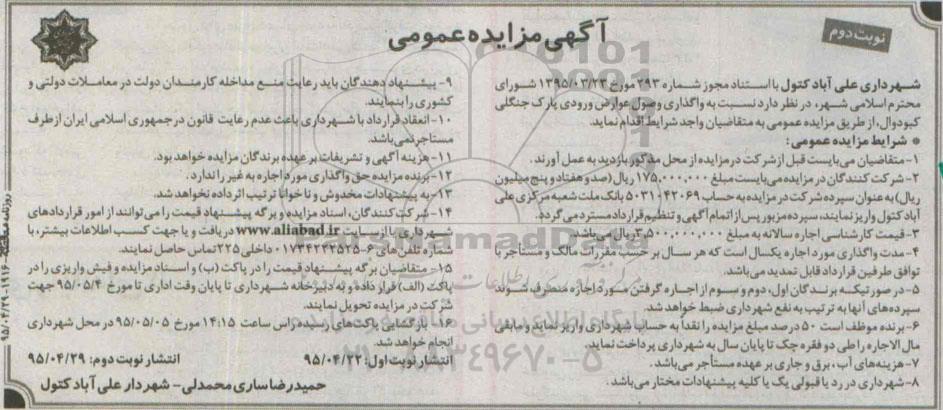 آگهی مزایده عمومی
نوبت دوم
شهرداری علی آباد کتول با استناد مجوز شماره ۲۹۳ مورخ ۱۳۹۵/۰۳/۲۳ شورای
محترم اسلامی شهر، در نظر دارد نسبت به واگذاری وصول عوارض ورودی پارک جنگلی
کبودوال، از طریق مزایده عمومی به متقاضیان واجد شرایط اقدام نماید.
* شرایط مزایده عمومی:
۱- متقاضیان می‌بایست قبل از شرکت در مزایده از محل مذکور بازدید به عمل آورند.
۲- شرکت کنندگان در مزایده می‌بایست مبلغ ۱۷۵,۰۰۰,۰۰۰ ریال (صد و هفتاد و پنج میلیون
ریال) به عنوان سپرده شرکت در مزایده به حساب ۵۰۳۱۰۴۲۰۶۹ بانک ملت شعبه مرکزی علی
آباد کتول واریز نمایند، سپرده مزبور پس از اتمام آگهی و تنظیم قرارداد مسترد می گردد.
۳- قیمت کارشناسی اجاره سالانه به مبلغ ۳,۵۰۰,۰۰۰,۰۰۰ ریال می‌باشد.
۴- مدت واگذاری مورد اجاره یکسال است که هر سال بر حسب مقررات مالک و مستأجر با
توافق طرفین قرارداد قابل تمدید می‌باشد.
۵- در صورتیکه برندگان اول، دوم و سوم از اجاره گرفتن مورد اجاره منصرف شوند
سپرده‌های آنها به ترتیب به نفع شهرداری ضبط خواهد شد.
۶- برنده موظف است ۵۰ درصد مبلغ مزایده را نقداً به حساب شهرداری واریز نماید و مابقی
مال الاجاره را طی دو فقره چک تا پایان سال به شهرداری پرداخت نماید.
۷- هزینه‌های آب، برق و جاری بر عهده مستأجر می‌باشد.
۸- شهرداری در رد یا قبولی یک یا کلیه پیشنهادات مختار می‌باشد.
۹- پیشنهاد دهندگان باید رعایت منع مداخله کارمندان دولت در معاملات دولتی و
کشوری را بنمایند.
۱۰- انعقاد قرارداد با شهرداری باعث عدم رعایت قانون در جمهوری اسلامی ایران از طرف
مستاجر نمی‌باشد.
۱۱- هزینه آگهی و تشریفات بر عهده برندگان مزایده خواهد بود.
۱۲- برنده مزایده حق واگذاری مورد اجاره به غیر را ندارد.
۱۳- به پیشنهادات مخدوش و ناخوانا ترتیب اثر داده نخواهد شد.
۱۴- شرکت کنندگان، اسناد مزایده و برگه پیشنهاد قیمت را می‌توانند از امور قراردادهای
شهرداری یا از سایت www.aliabad.ir دریافت و یا جهت کسب اطلاعات بیشتر، با
شماره تلفن های ۶-۰۱۷۳۴۲۳۳۵۲۵ داخلی ۲۲۵ تماس حاصل نمایند.
۱۵- متقاضیان برگه پیشنهاد قیمت را در پاکت (ب) و اسناد مزایده و فیش واریزی را در
پاکت (الف) قرار داده و به دبیرخانه شهرداری تا پایان وقت اداری تا مورخ ۹۵/۰۵/۴ جهت
شرکت در مزایده تحویل نمایند.
۱۶- بازگشایی پاکت‌های رسیده راس ساعت ۱۴:۱۵ مورخ ۹۵/۰۵/۰۵ در محل شهرداری
انجام خواهد شد.
انتشار نوبت اول: ۹۵/۰۴/۲۲ انتشار نوبت دوم: ۹۵/۰۴/۲۹
حمیدرضا ساری محمدلی - شهردار علی آباد کتول